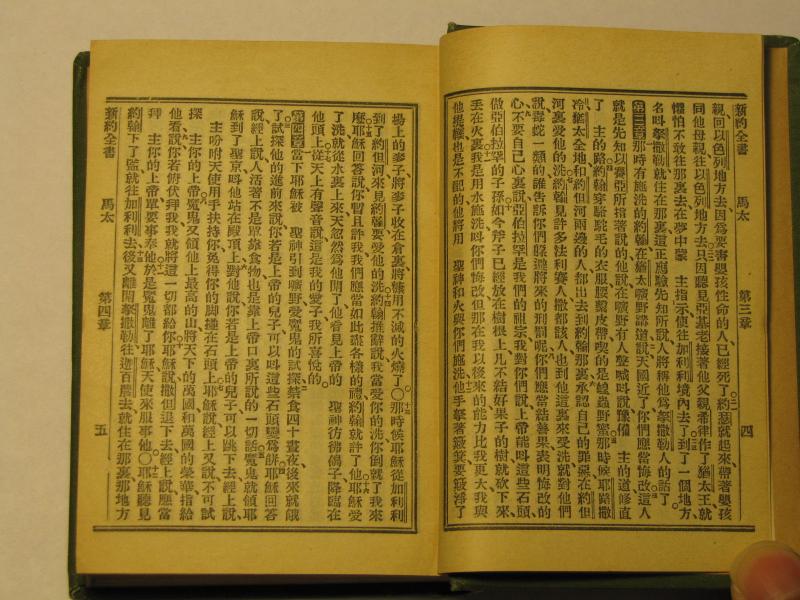 新約全書 馬太 第三章 四
親回以色列地方去因為要害嬰孩性命的人、已經死了約瑟就起來帶著嬰孩
同他母親往以色列地方去只因聽見亞基老接著他父親希律作了猶太王就
懼怕不敢往那裏去在夢中蒙 主指示便往加利利境內去了到了一個地方、
名叫拏撒勒就住在那裏這正應驗先知所說人將稱他為拏撒勒人的話了
第三章那時有施洗的約翰在猶太曠野講道說天國近了你們應當悔改這人
就是先知以賽亞所指著說的他說在曠野有人聲喊叫說豫備 主的道修直
了 主的路約翰穿駱駝毛的衣服腰繫皮帶喫的是蝗蟲野蜜那時候耶路撒
冷猶太全地和約但河兩邊的人都出去到約翰那裏承認自己的罪惡在約但
河裏受他的洗約翰見許多法利賽人撒都該人也到他這裏來受洗就對他們
說毒蛇一類的誰告訴你們躲避將來的刑罰呢你們應當結善果表明悔改的
心不要自己心裏說亞伯拉罕是我們的祖宗我對你們說上帝能叫這些石頭
做亞伯拉罕的子孫如今斧子已經放在樹根上凡不結好果子的樹就砍下來
丟在火裏我是用水施洗叫你們悔改但那在我以後來的能力比我更大我與
他提鞋也是不配的他將用 聖神和火與你們施洗他手拏著簸箕要簸淨了
場上的麥子將麥子收在倉裏將糠用不滅的火燒了〇那時候耶穌從加利利
到了約但河來見約翰要受他的洗約翰推辭說我當受你的洗你倒就了我來
麼耶穌回答說你暫且許我我們應當如此盡各樣的禮約翰就許了他耶穌受
了洗就從水裏上來天忽然為他開了他看見上帝的 聖神彷彿鴿子降臨在
他頭上從天上有聲音說這是我的愛子我所喜悅的
第四章當下耶穌被 聖神引到曠野受魔鬼的試探禁食四十晝夜後來就餓
了試探他的進前來說你若是上帝的兒子可以叫這些石頭變為餅耶穌回答
說經上說人活著不是單靠食物也是靠上帝口裏所說的一切話魔鬼就領耶
穌到了聖京叫他站在殿頂上對他說你若是上帝的兒子可以跳下去經上說、
 主吩咐天使用手扶持你免得你的脚碰在石頭上耶穌說經上又說不可試
探 主你的上帝魔鬼又領他上最高的山將天下的萬國和萬國的榮華指給
他看說你若俯伏拜我我就將這一切都給你耶穌說撒但退下去經上說應當
拜 主你的上帝單要事奉他於是魔鬼離了耶穌天使來服事他〇耶穌聽見
約翰下了監就往加利利去後又離開拏撒勒往迦百農去就住在那裏那地方
新約全書 馬太 第四章 五